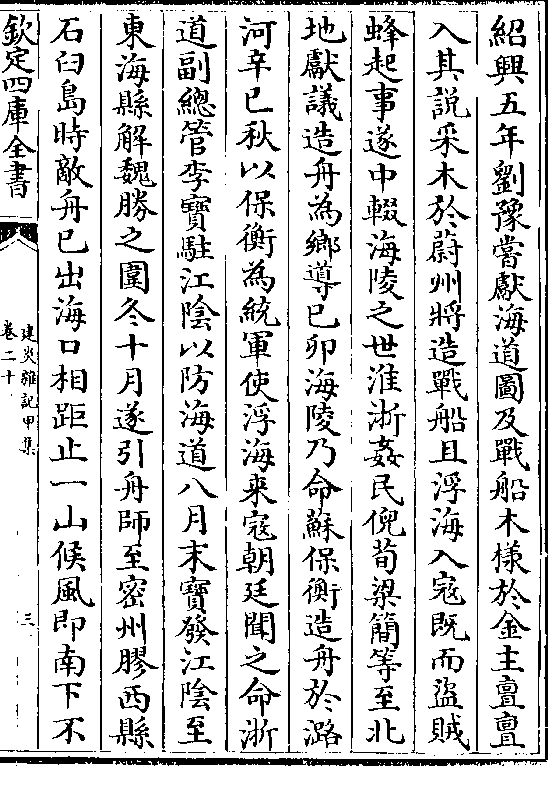 紹興五年劉豫嘗獻海道圖及戰船木様於金主亶亶
入其説采木於蔚州將造戰船且浮海入寇既而盜賊
蜂起事遂中輟海陵之世淮浙姦民倪荀梁簡等至北
地獻議造舟為鄉導已卯海陵乃命蘇保衡造舟於潞
河辛巳秋以保衡為統軍使浮海来寇朝廷聞之命浙
道副總管李寶駐江陰以防海道八月末寶發江陰至
東海縣解魏勝之圍冬十月遂引舟師至密州膠西縣
石臼島時敵舟已出海口相距止一山候風即南下不
欽定四庫全書
建炎雜記甲集
卷二十
三